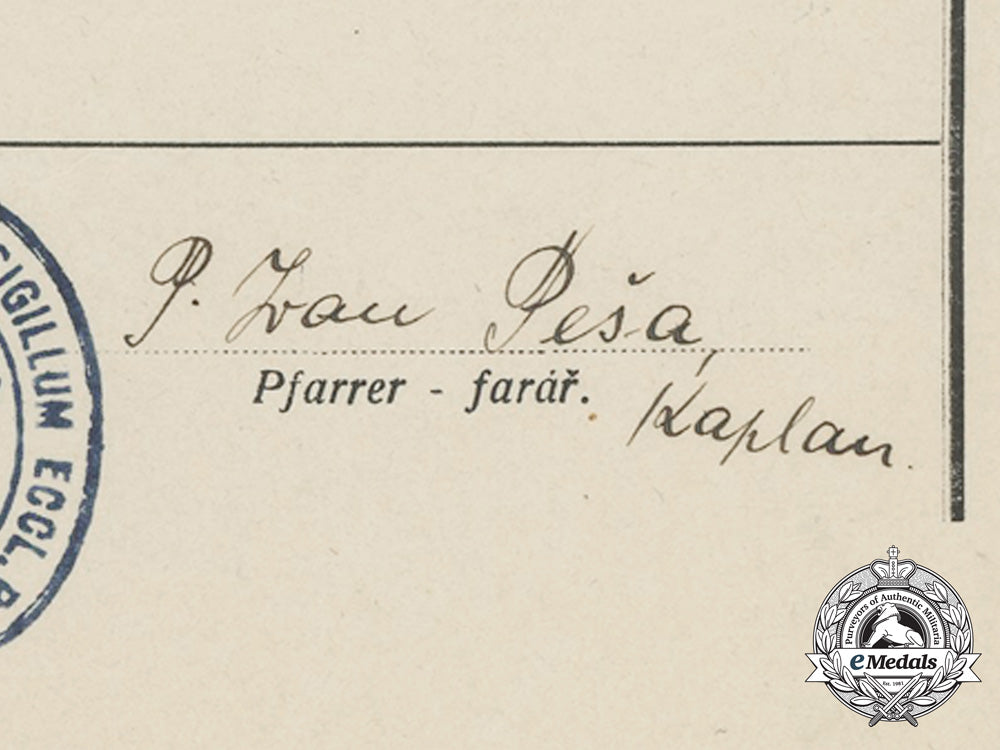 SIGILLUM ECCL.
P. Ivan Peša,
Pfarrer - farář.
Kaplan.
Purveyors of Authentic Militaria
eMedals
Est. 1981